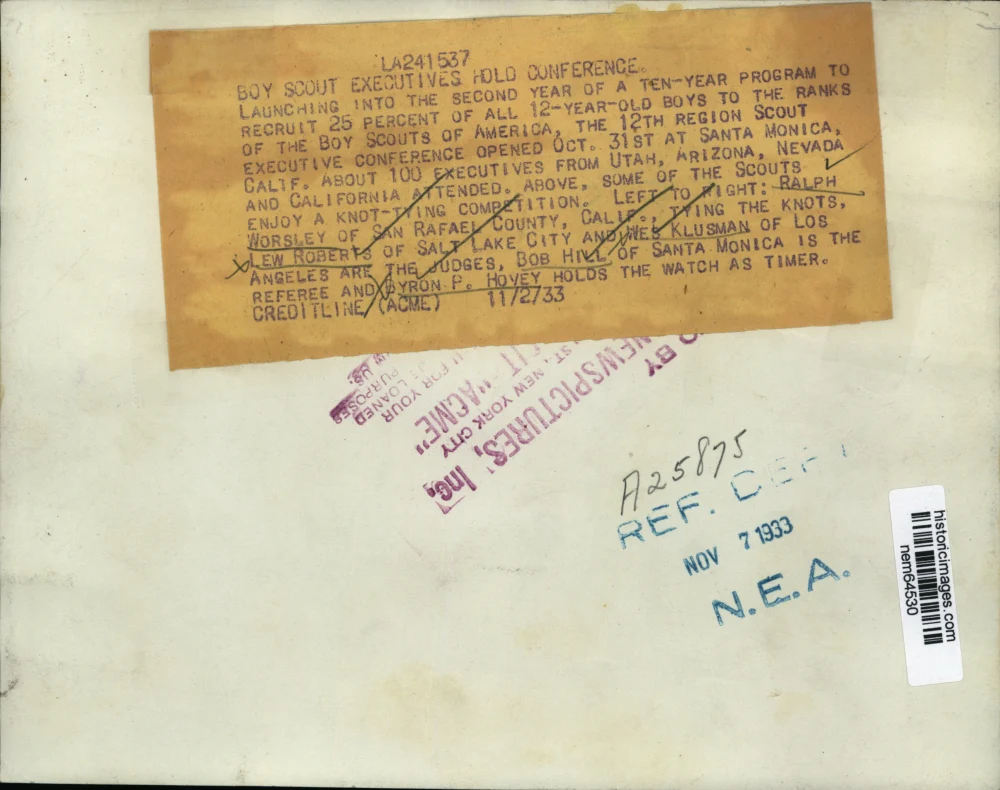 LA241537
BOY SCOUT EXECUTIVES HOLD CONFERENCE.
LAUNCHING INTO THE SECOND YEAR OF A TEN-YEAR PROGRAM TO
RECRUIT 25 PERCENT OF ALL 12-YEAR-OLD BOYS TO THE RANKS
OF THE BOY SCOUTS OF AMERICA, THE 12TH REGION SCOUT
EXECUTIVE CONFERENCE OPENED OCT. 31ST AT SANTA MONICA,
CALIF. ABOUT 100 EXECUTIVES FROM UTAH, ARIZONA, NEVADA
AND CALIFORNIA ATTENDED. ABOVE, SOME OF THE SCOUTS
ENJOY A KNOT-TYING COMPETITION. LEFT TO RIGHT: RALPH
WORSLEY OF SAN RAFAEL COUNTY, CALIF., TYING THE KNOTS,
LEW ROBERTS OF SALT LAKE CITY AND WES KLUSMAN OF LOS
ANGELES ARE THE JUDGES, BOB HILL OF SANTA MONICA IS THE
REFEREE AND BYRON P. HOVEY HOLDS THE WATCH AS TIMER.
CREDITLINE (ACME) 11/2/33
BY
NEWSPICTURES, Inc.
1ST, NEW YORK CITY
"ACME"
FOR YOUR
LOANED
PURPOSES
A25875
REF. DEPT
NOV 7 1933
N.E.A.
historicimages.com
nem64530